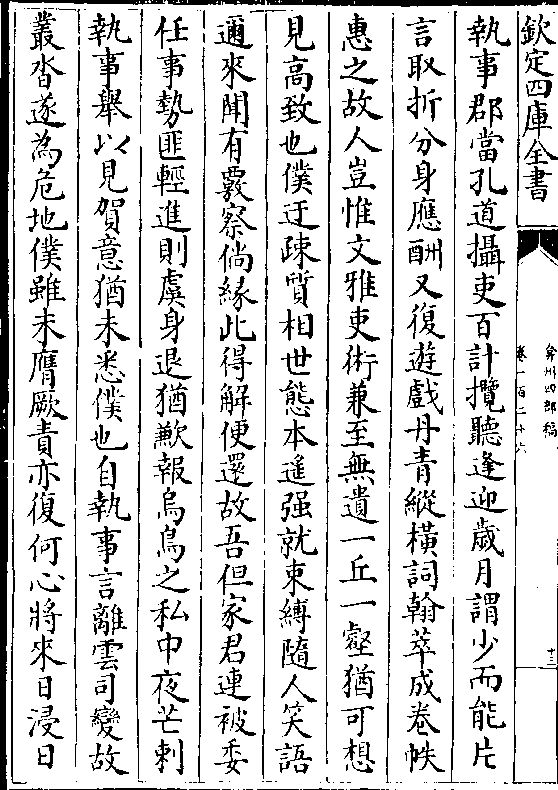 欽定四庫全書
弇州四部稿
卷一百二十六
十三
執事郡當孔道攝吏百計攬聽逢迎歲月謂少而能片
言取折分身應酬又復遊戲丹青縱橫詞翰萃成卷帙
惠之故人豈惟文雅吏術兼至無遺一丘一壑猶可想
見高致也僕迂疎質相世態本遙强就束縛隨人笑語
邇來聞有覈察倘緣此得解便還故吾但家君連被委
任事勢匪輕進則虞身退猶歉報烏鳥之私中夜芒刺
執事舉以見賀意猶未悉僕也自執事言離雲司變故
叢沓遂為危地僕雖未膺厥責亦復何心將來日浸日